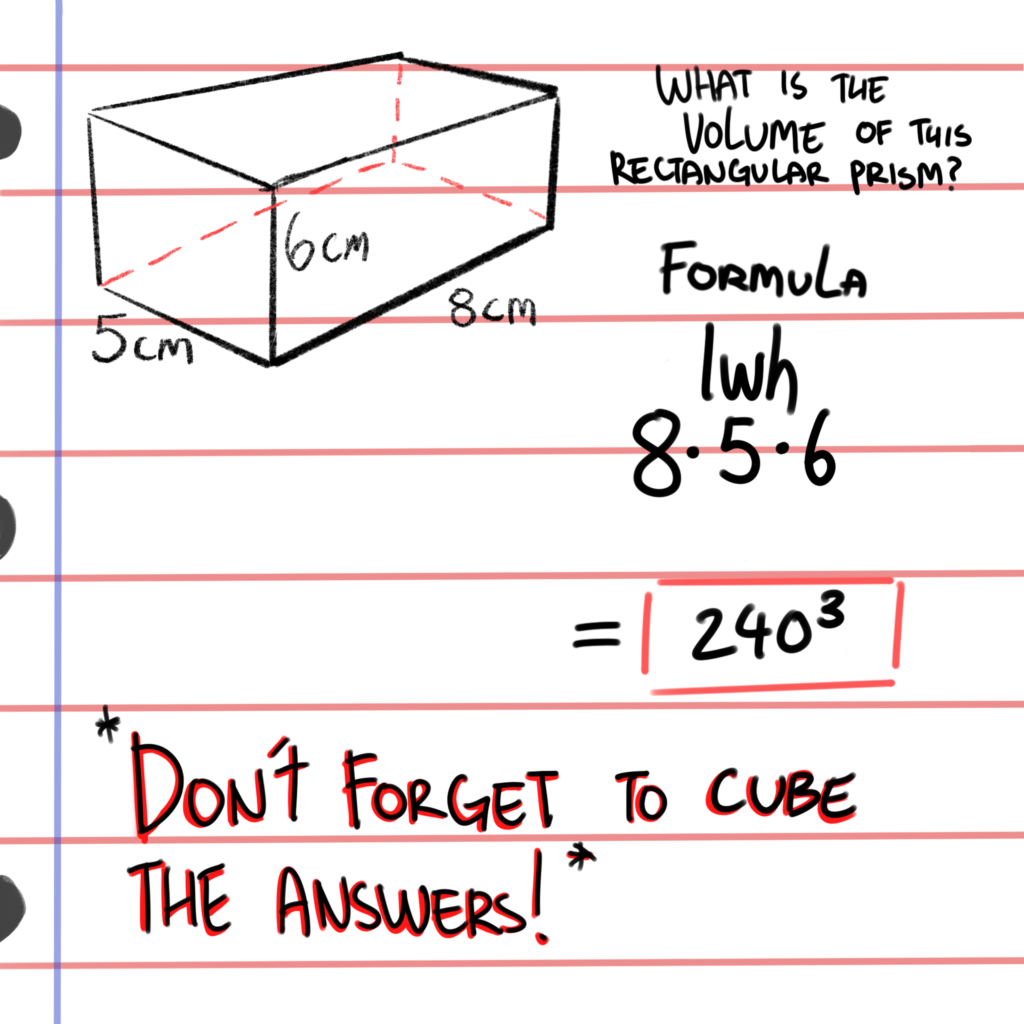 WHAT IS THE
VOLUME OF THIS
RECTANGULAR PRISM?
6cm
8cm
5cm
FORMULA
lwh
8·5·6
= 240³
*DON'T FORGET TO CUBE
THE ANSWERS!*